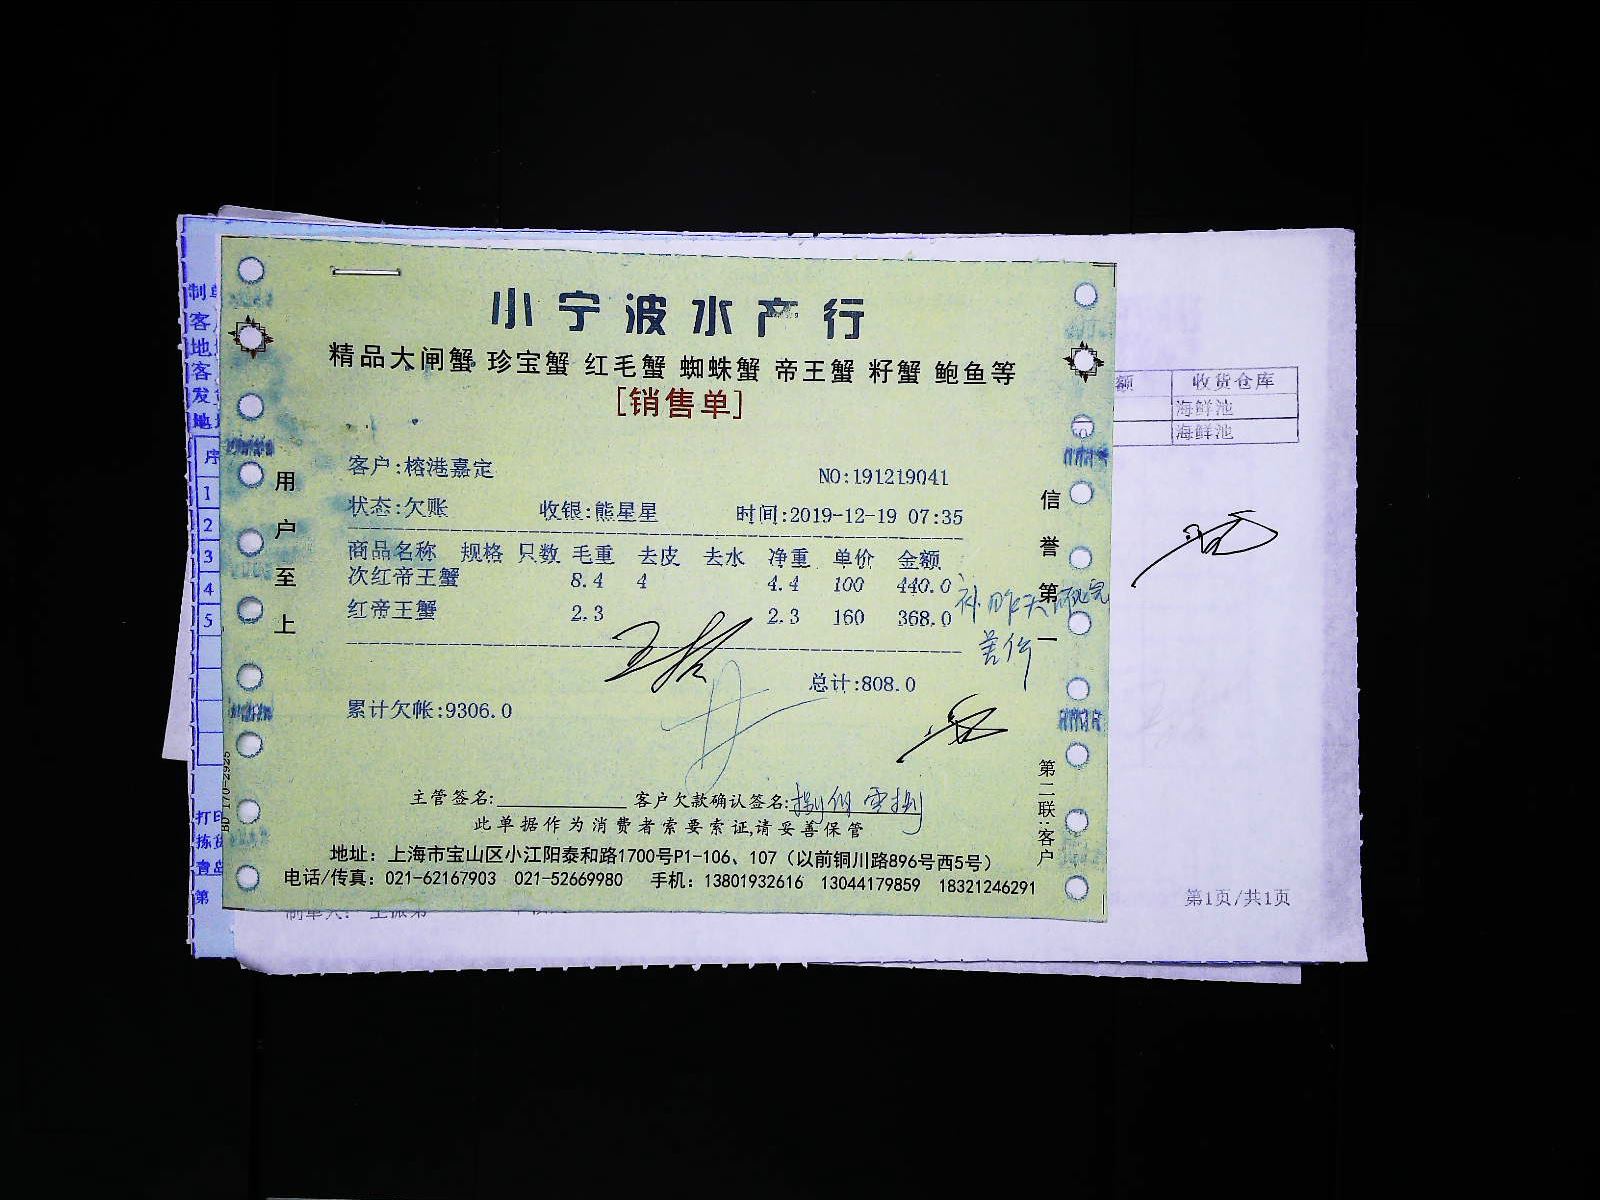 小宁波水产行
精品大闸蟹 珍宝蟹 红毛蟹 蜘蛛蟹 帝王蟹 籽蟹 鲍鱼等
[销售单]
客户:榕港嘉定
NO:191219041
状态:欠账 收银:熊星星 时间:2019-12-19 07:35
商品名称 规格 只数 毛重 去皮 去水 净重 单价 金额
次红帝王蟹 8.4 4 4.4 100 440.0
红帝王蟹 2.3 2.3 160 368.0
补昨天
差价
总计:808.0
累计欠帐:9306.0
主管签名: 客户欠款确认签名:捌佰零捌
此单据作为消费者索要索证,请妥善保管
地址：上海市宝山区小江阳泰和路1700号P1-106、107（以前铜川路896号西5号）
电话/传真：021-62167903 021-52669980 手机：13801932616 13044179859 18321246291
用户至上
信誉第一
第二联:客户
额 收货仓库
海鲜池
海鲜池
第1页/共1页
制单
客
地
客
发
地
序
1
2
3
4
5
打印
拣货
青岛
第
制单人: